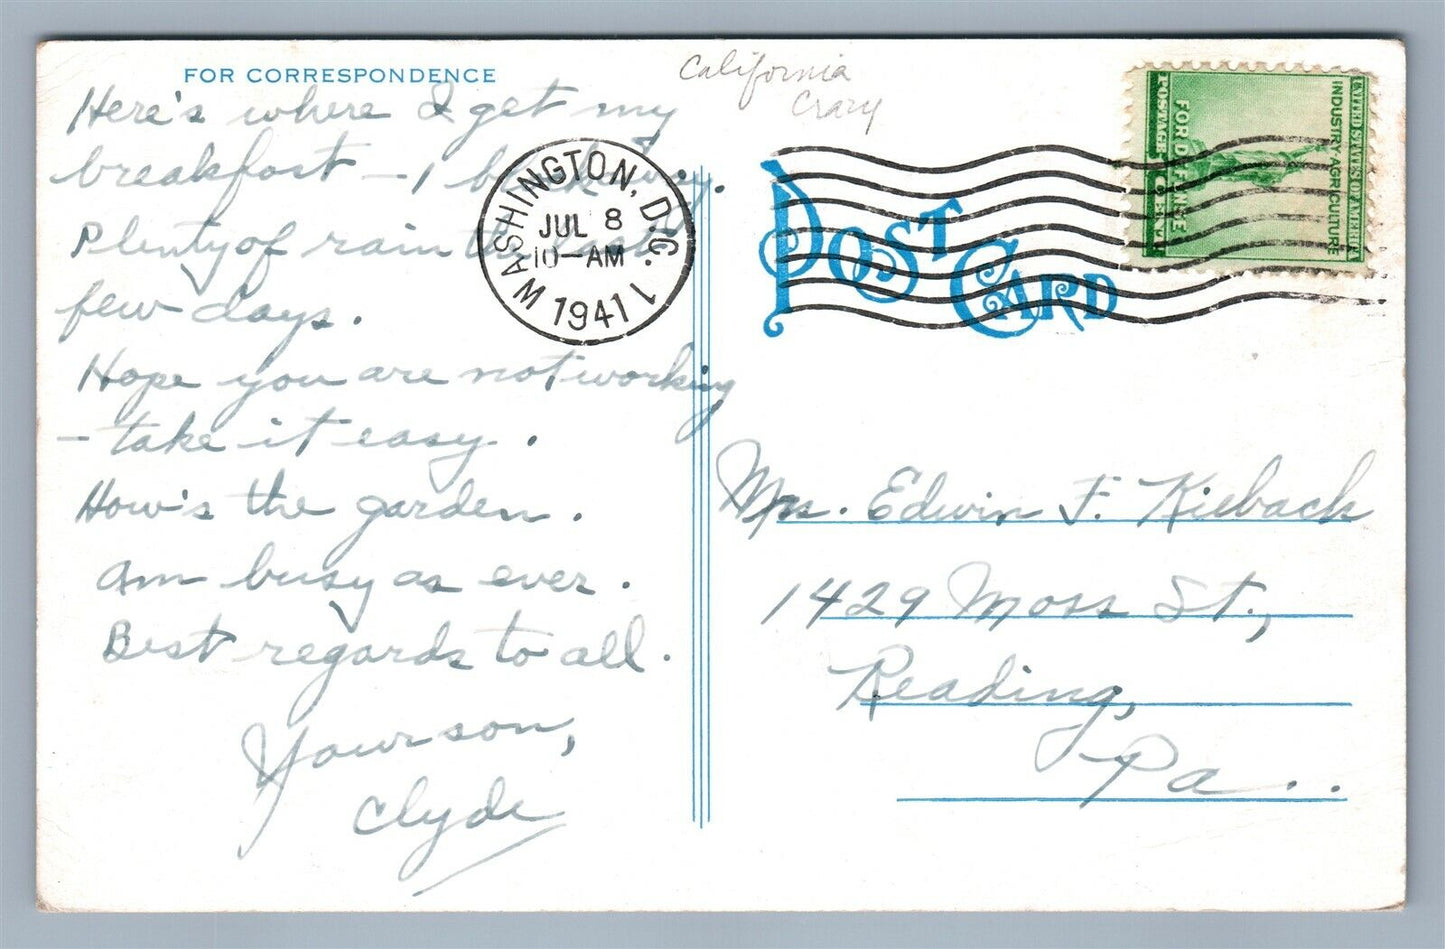 FOR CORRESPONDENCE
Here's where I get my
breakfast – 1 block away.
Plenty of rain the last
few days.
Hope you are not working
– take it easy.
How's the garden.
Am busy as ever.
Best regards to all.
Your son,
Clyde
California
Crazy
WASHINGTON, D.C. 1
JUL 8
10–AM
1941
POST CARD
UNITED STATES OF AMERICA
INDUSTRY AGRICULTURE
FOR DEFENSE
POSTAGE
Mrs. Edwin F. Kieback
1429 Moss St.,
Reading,
Pa..